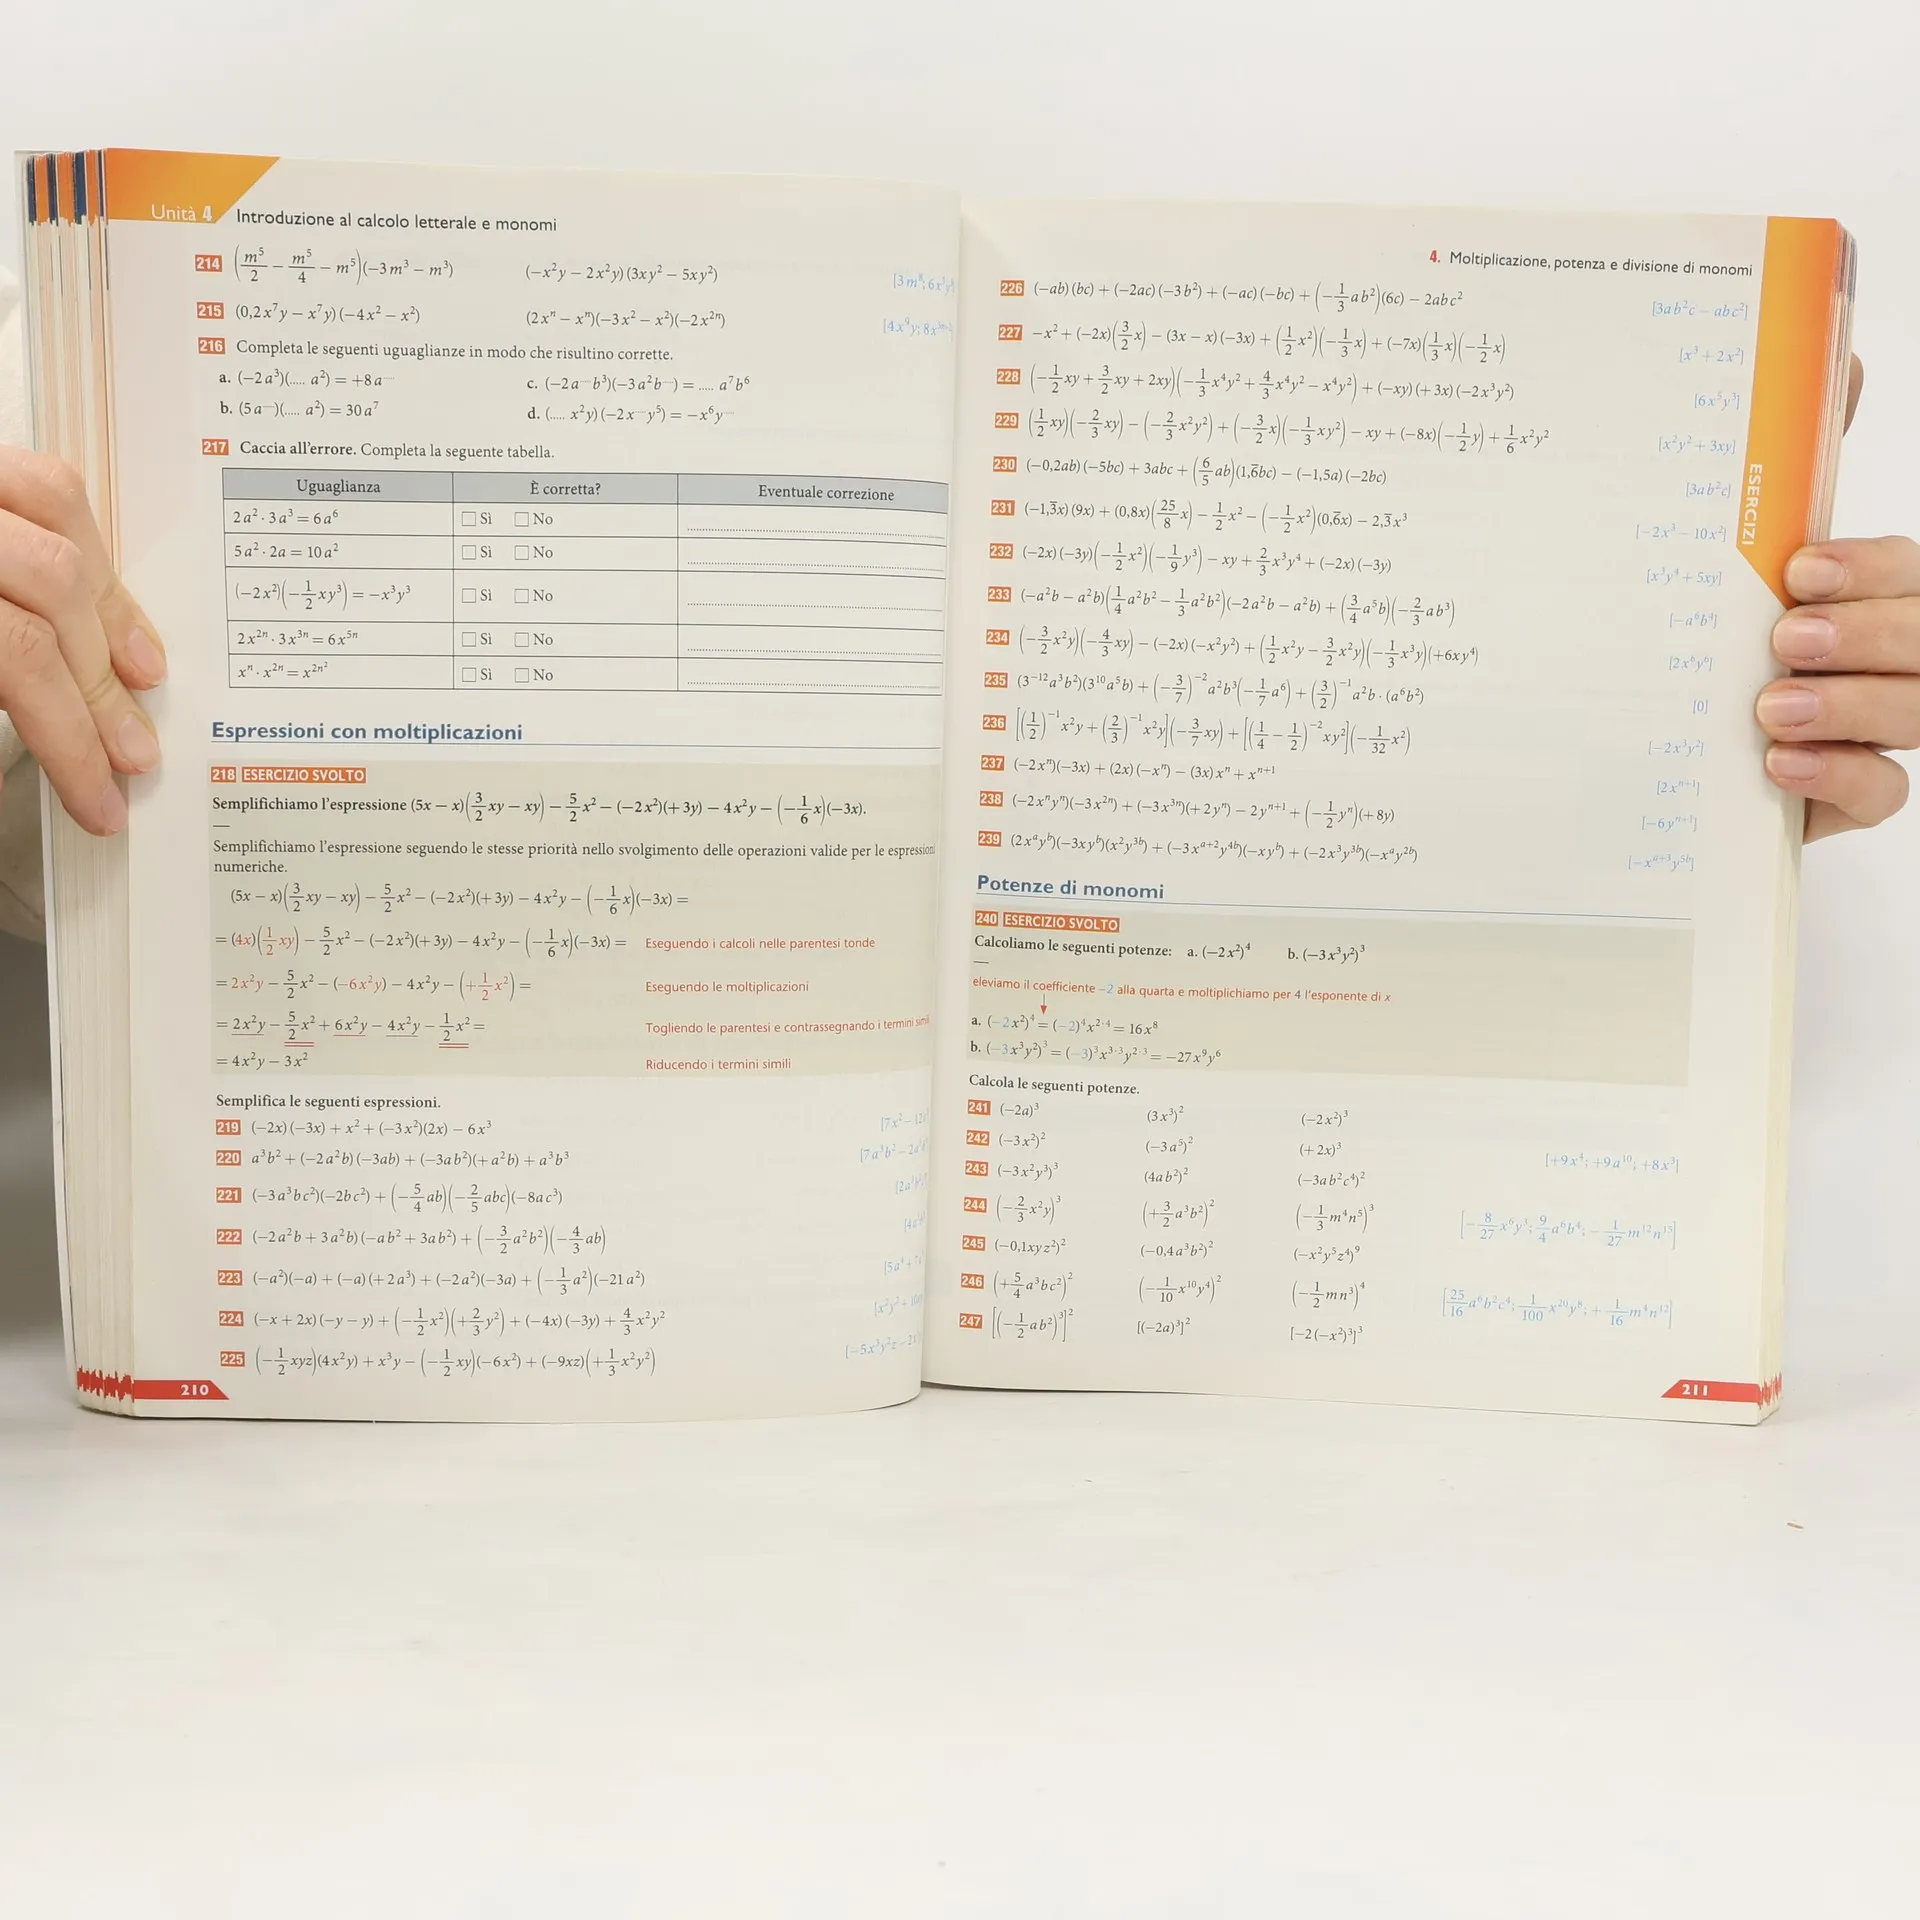 Unità 4 Introduzione al calcolo letterale e monomi
214 (m⁵/2 − m⁵/4 − m⁵)(−3m³ − m³) (−x²y − 2x²y)(3xy² − 5xy²) [3m⁸; 6x³y³
215 (0,2x⁷y − x⁷y)(−4x² − x²) (2xⁿ − xⁿ)(−3x² − x²)(−2x²ⁿ) [4x⁹y; 8x³ⁿ⁺²
216 Completa le seguenti uguaglianze in modo che risultino corrette.
a. (−2a³)(..... a²) = +8a^...  c. (−2a^... b³)(−3a²b^...) = ..... a⁷b⁶
b. (5a^...)(..... a²) = 30a⁷  d. (..... x²y)(−2x^... y⁵) = −x⁶y^...
217 Caccia all'errore. Completa la seguente tabella.
Uguaglianza È corretta? Eventuale correzione
2a² · 3a³ = 6a⁶ □ Sì □ No
5a² · 2a = 10a² □ Sì □ No
(−2x²)(−1/2 xy³) = −x³y³ □ Sì □ No
2x²ⁿ · 3x³ⁿ = 6x⁵ⁿ □ Sì □ No
xⁿ · x²ⁿ = x^(2n²) □ Sì □ No
Espressioni con moltiplicazioni
218 ESERCIZIO SVOLTO
Semplifichiamo l'espressione (5x − x)(3/2 xy − xy) − 5/2 x² − (−2x²)(+3y) − 4x²y − (−1/6 x)(−3x).
Semplifichiamo l'espressione seguendo le stesse priorità nello svolgimento delle operazioni valide per le espressioni
numeriche.
(5x − x)(3/2 xy − xy) − 5/2 x² − (−2x²)(+3y) − 4x²y − (−1/6 x)(−3x) =
= (4x)(1/2 xy) − 5/2 x² − (−2x²)(+3y) − 4x²y − (−1/6 x)(−3x) = Eseguendo i calcoli nelle parentesi tonde
= 2x²y − 5/2 x² − (−6x²y) − 4x²y − (+1/2 x²) = Eseguendo le moltiplicazioni
= 2x²y − 5/2 x² + 6x²y − 4x²y − 1/2 x² = Togliendo le parentesi e contrassegnando i termini simili
= 4x²y − 3x² Riducendo i termini simili
Semplifica le seguenti espressioni.
219 (−2x)(−3x) + x² + (−3x²)(2x) − 6x³ [7x² − 12x³
220 a³b² + (−2a²b)(−3ab) + (−3ab²)(+a²b) + a³b³ [7a³b² − 2a³b³
221 (−3a³bc²)(−2bc²) + (−5/4 ab)(−2/5 abc)(−8ac³)
222 (−2a²b + 3a²b)(−ab² + 3ab²) + (−3/2 a²b²)(−4/3 ab)
223 (−a²)(−a) + (−a)(+2a³) + (−2a²)(−3a) + (−1/3 a²)(−21a²)
224 (−x + 2x)(−y − y) + (−1/2 x²)(+2/3 y²) + (−4x)(−3y) + 4/3 x²y² [x²y² + 10xy
225 (−1/2 xyz)(4x²y) + x³y − (−1/2 xy)(−6x²) + (−9xz)(+1/3 x²y²) [−5x³y²z − 2x³y
210
4. Moltiplicazione, potenza e divisione di monomi
226 (−ab)(bc) + (−2ac)(−3b²) + (−ac)(−bc) + (−1/3 ab²)(6c) − 2abc² [3ab²c − abc²]
227 −x² + (−2x)(3/2 x) − (3x − x)(−3x) + (1/2 x²)(−1/3 x) + (−7x)(1/3 x)(−1/2 x) [x³ + 2x²]
228 (−1/2 xy + 3/2 xy + 2xy)(−1/3 x⁴y² + 4/3 x⁴y² − x⁴y²) + (−xy)(+3x)(−2x³y²) [6x⁵y³]
229 (1/2 xy)(−2/3 xy) − (−2/3 x²y²) + (−3/2 x)(−1/3 xy²) − xy + (−8x)(−1/2 y) + 1/6 x²y² [x²y² + 3xy]
230 (−0,2ab)(−5bc) + 3abc + (6/5 ab)(1,6̅bc) − (−1,5a)(−2bc) [3ab²c]
231 (−1,3̅x)(9x) + (0,8x)(25/8 x) − 1/2 x² − (−1/2 x²)(0,6̅x) − 2,3̅x³ [−2x³ − 10x²]
232 (−2x)(−3y)(−1/2 x²)(−1/9 y³) − xy + 2/3 x³y⁴ + (−2x)(−3y) [x³y⁴ + 5xy]
233 (−a²b − a²b)(1/4 a²b² − 1/3 a²b²)(−2a²b − a²b) + (3/4 a⁵b)(−2/3 ab³) [−a⁶b⁴]
234 (−3/2 x²y)(−4/3 xy) − (−2x)(−x²y²) + (1/2 x²y − 3/2 x²y)(−1/3 x³y)(+6xy⁴) [2x⁶y⁶]
235 (3⁻¹²a³b²)(3¹⁰a⁵b) + (−3/7)⁻²a²b³(−1/7 a⁶) + (3/2)⁻¹a²b · (a⁶b²) [0]
236 [(1/2)⁻¹x²y + (2/3)⁻¹x²y](−3/7 xy) + [(1/4 − 1/2)⁻²xy²](−1/32 x²) [−2x³y²]
237 (−2xⁿ)(−3x) + (2x)(−xⁿ) − (3x)xⁿ + xⁿ⁺¹ [2xⁿ⁺¹]
238 (−2xⁿyⁿ)(−3x²ⁿ) + (−3x³ⁿ)(+2yⁿ) − 2yⁿ⁺¹ + (−1/2 yⁿ)(+8y) [−6yⁿ⁺¹]
239 (2xᵃyᵇ)(−3xyᵇ)(x²y³ᵇ) + (−3xᵃ⁺²y⁴ᵇ)(−xyᵇ) + (−2x³y³ᵇ)(−xᵃy²ᵇ) [−xᵃ⁺³y⁵ᵇ]
ESERCIZI
Potenze di monomi
240 ESERCIZIO SVOLTO
Calcoliamo le seguenti potenze: a. (−2x²)⁴ b. (−3x³y²)³
eleviamo il coefficiente −2 alla quarta e moltiplichiamo per 4 l'esponente di x
a. (−2x²)⁴ = (−2)⁴x²·⁴ = 16x⁸
b. (−3x³y²)³ = (−3)³x³·³y²·³ = −27x⁹y⁶
Calcola le seguenti potenze.
241 (−2a)³ (3x³)² (−2x²)³
242 (−3x²)² (−3a⁵)² (+2x)³ [+9x⁴; +9a¹⁰; +8x³]
243 (−3x²y³)³ (4ab²)² (−3ab²c⁴)²
244 (−2/3 x²y)³ (+3/2 a³b²)² (−1/3 m⁴n⁵)³ [−8/27 x⁶y³; 9/4 a⁶b⁴; −1/27 m¹²n¹⁵]
245 (−0,1xyz²)² (−0,4a³b²)² (−x²y⁵z⁴)⁹
246 (+5/4 a³bc²)² (−1/10 x¹⁰y⁴)² (−1/2 mn³)⁴ [25/16 a⁶b²c⁴; 1/100 x²⁰y⁸; +1/16 m⁴n¹²]
247 [(−1/2 ab²)³]² [(−2a)³]² [−2(−x²)³]³
211